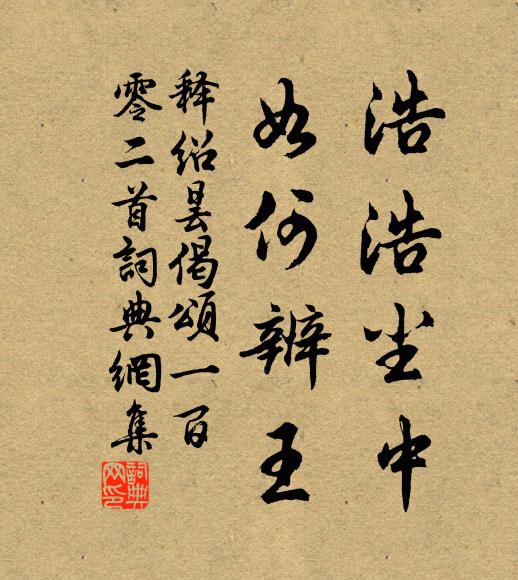 浩浩尘中
如何辨王
释绍昙偈頌一百
零二首詞典網集
詞典网印